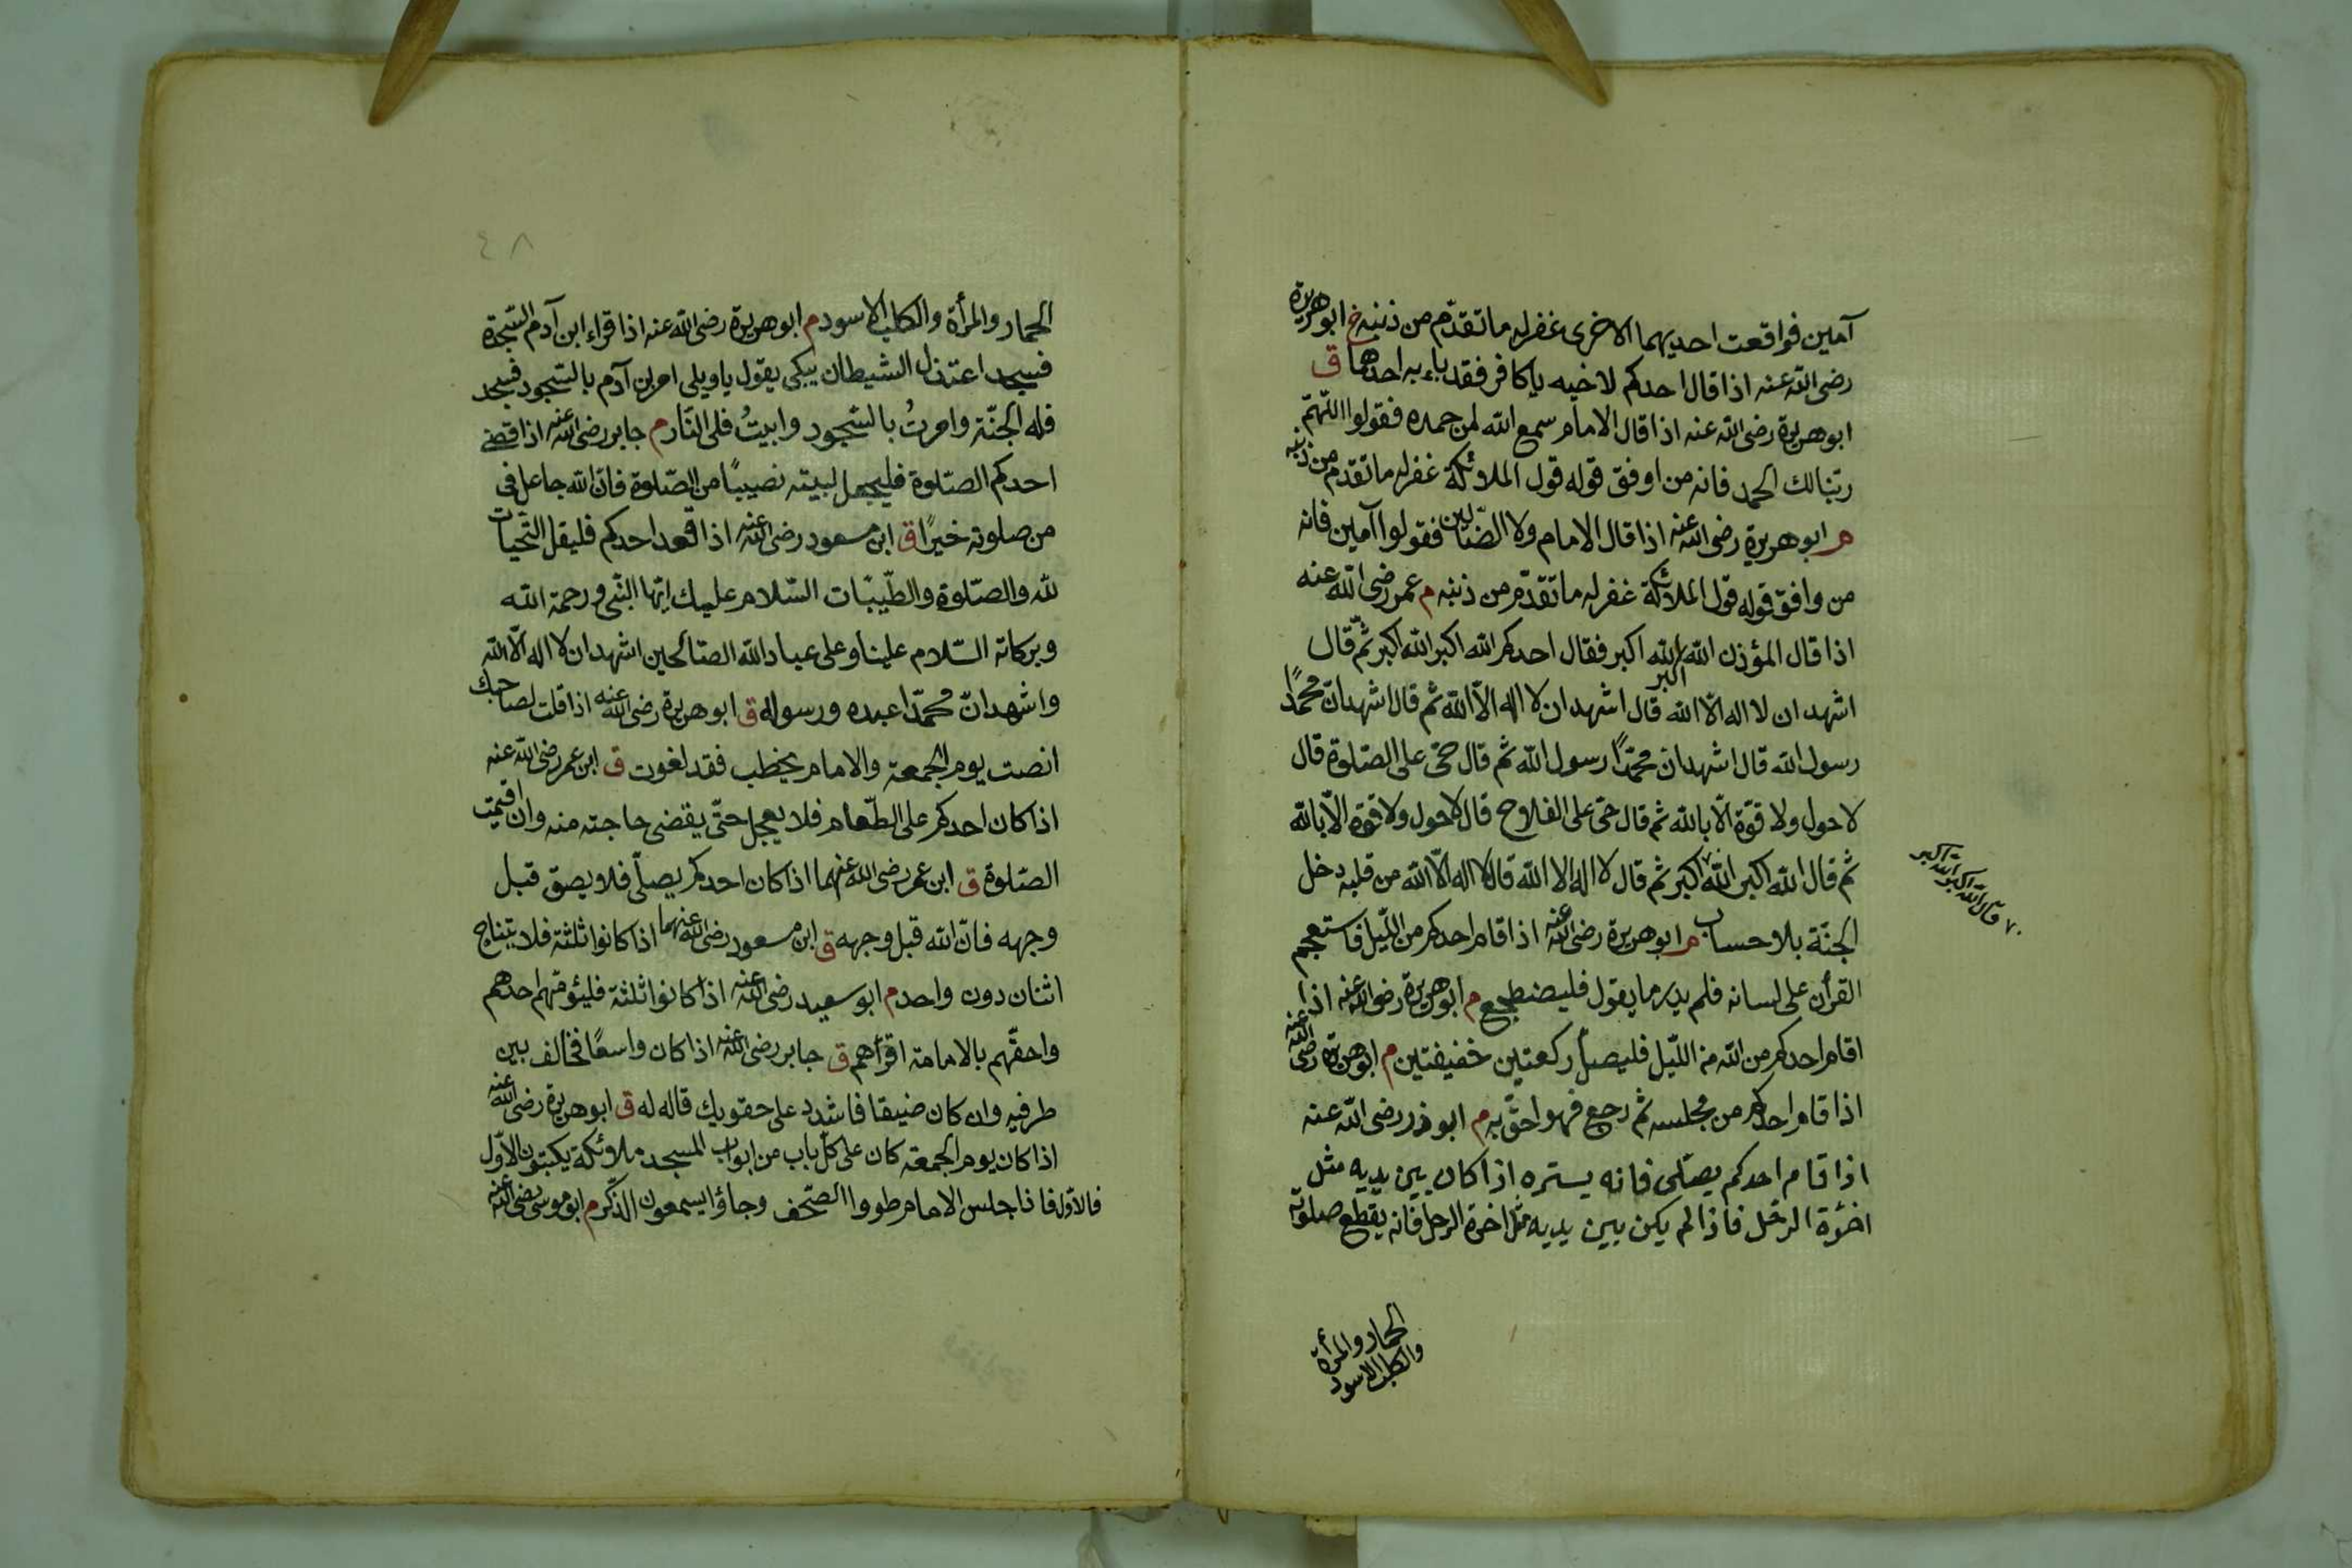 آمين فوافقت احديهما الاخرى غفر له ما تقدّم من ذنبه خ ابو هريرة
رضى الله عنه اذا قال احدكم لاخيه يا كافر فقد باء به احدهما ق
ابو هريرة رضى الله عنه اذا قال الامام سمع الله لمن حمده فقولوا اللّهمّ
ربّنا لك الحمد فانه من اوفق قوله قول الملائكة غفر له ما تقدم من ذنبه
م ابو هريرة رضى الله عنه اذا قال الامام ولا الضّالّين فقولوا آمين فانه
من وافق قوله قول الملائكة غفر له ما تقدّم من ذنبه م عمر رضى الله عنه
اذا قال المؤذن الله اكبر الله اكبر فقال احدكم الله اكبر الله اكبر ثمّ قال
اشهد ان لا اله الّا الله قال اشهد ان لا اله الّا الله ثم قال اشهد انّ محمّدًا
رسول الله قال اشهد ان محمّدًا رسول الله ثم قال حىّ على الصّلوة قال
لا حول ولا قوّة الّا بالله ثم قال حىّ على الفلاح قال لا حول ولا قوّة الّا بالله
ثم قال الله اكبر الله اكبر ٧ ثم قال لا اله الا الله قال لا اله الّا الله من قلبه دخل
الجنّة بلا حساب م ابو هريرة رضى الله عنه اذا قام احدكم من اللّيل فاستعجم
القرأن على لسانه فلم يدر ما يقول فليضطجع م ابو هريرة رضى الله عنه اذا
اقام احدكم من الله من اللّيل فليصلّ ركعتين خفيفتين م ابو هريرة رضى الله عنه
اذا قام احدكم من مجلسه ثم رجع فهو احقّ به م ابو ذر رضى الله عنه
اذا قام احدكم يصلّى فانه يستره اذا كان بين يديه مثل
اخرة الرحل فاذا لم يكن بين يديه مثل اخرة الرحل فانه يقطع صلوته
٧ قال الله اكبر الله اكبر
الحمار والمرأة
والكلب الاسود
٤٨
الحمار والمرأة والكلب الاسود م ابو هريرة رضى الله عنه اذا قراء ابن آدم السّجدة
فسجد اعتزل الشيطان يبكى يقول يا ويلى امر بن آدم بالسّجود فسجد
فله الجنّة وامرتُ بالسّجود وابيتُ فلى النّار م جابر رضى الله عنه اذا قضى
احدكم الصّلوة فليجعل لبيته نصيبًا من الصّلوة فانّ الله جاعل فى
من صلوته خيرًا ق ابن مسعود رضى الله عنه اذا قعد احدكم فليقل التّحيات
لله والصّلوة والطّيبات السّلام عليك ايّها النّبى ورحمة الله
وبركاته السّلام علينا وعلى عباد الله الصّالحين اشهد ان لا اله الّا الله
واشهد انّ محمّدا عبده ورسوله ق ابو هريرة رضى الله عنه اذا قلت لصاحبك
انصت يوم الجمعة والامام يخطب فقد لغوت ق ابن عمر رضى الله عنه
اذا كان احدكم على الطّعام فلا يعجل حتّى يقضى حاجته منه وان اقيمت
الصّلوة ق ابن عمر رضى الله عنهما اذا كان احدكم يصلّى فلا يبصق قبل
وجهه فانّ الله قبل وجهه ق ابن مسعود رضى الله عنهما اذا كانوا ثلثة فلا يتناج
اثنان دون واحد م ابو سعيد رضى الله عنه اذا كانوا ثلثة فليؤمّهم احدهم
واحقّهم بالامامة اقرأهم ق جابر رضى الله عنه اذا كان واسعًا فخالف بين
طرفيه وان كان ضيقا فاشدد على حقويك قاله له ق ابو هريرة رضى الله عنه
اذا كان يوم الجمعة كان على كلّ باب من ابواب المسجد ملائكة يكتبون الاوّل
فالاوّل فاذا جلس الامام طووا الصّحف وجاؤا يسمعون الذّكر م ابو موسى رضى الله عنه